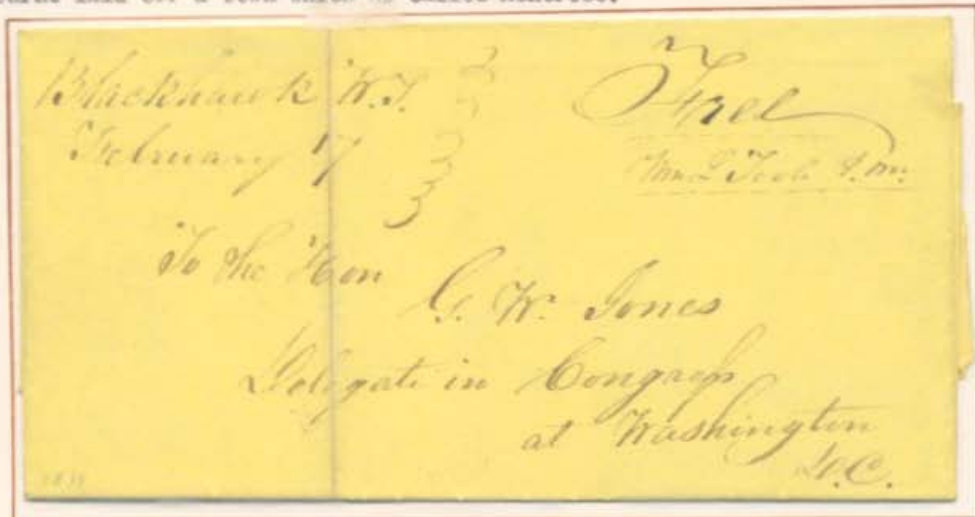 Blackhawk W.T.
February 17
Free
Wm L Toole P. M.
To the Hon
G. W. Jones
Delegate in Congress
at Washington
D.C.